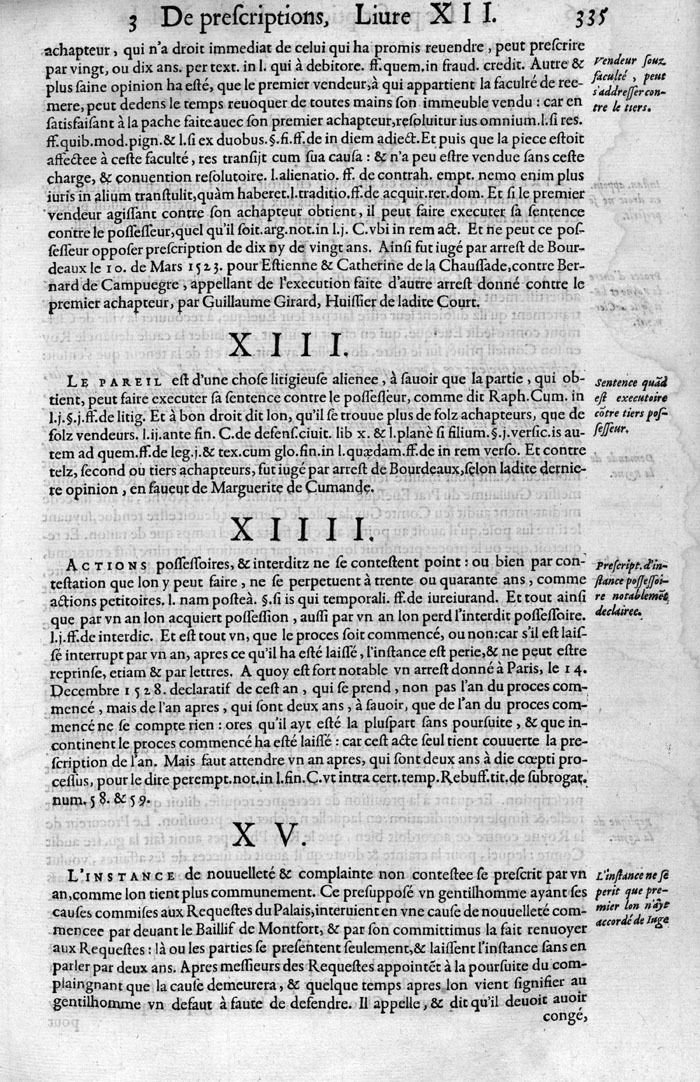 3 De prescriptions, Liure XII. 335
achapteur, qui n'a droit immediat de celui qui ha promis reuendre, peut prescrire
par vingt, ou dix ans. per text. in l. qui à debitore. ff. quem. in fraud. credit. Autre &
plus saine opinion ha esté, que le premier vendeur, à qui appartient la faculré de ree-
mere, peut dedens le temps reuoquer de toutes mains son immeuble vendu : car en
satisfaisant à la pache faite auec son premier achapteur, resoluitur ius omnium. l. si res.
ff. quib. mod. pign. & l. si ex duobus. §. fi. ff. de in diem adiect. Et puis que la piece estoit
affectee à ceste faculté, res transijt cum sua causa : & n'a peu estre vendue sans ceste
charge, & conuention resolutoire. l. alienatio. ff. de contrah. empt. nemo enim plus
iuris in alium transtulit, quàm haberet. l. traditio. ff. de acquir. rer. dom. Et si le premier
vendeur agissant contre son achapteur obtient, il peut faire executer sa sentence
contre le possesseur, quel qu'il soit. arg. not. in l. j. C. vbi in rem act. Et ne peut ce pos-
sesseur opposer prescription de dix ny de vingt ans. Ainsi fut iugé par arrest de Bour-
deaux le 10. de Mars 1523. pour Estienne & Catherine de la Chaussade, contre Ber-
nard de Campuegre, appellant de l'execution faite d'autre arrest donné contre le
premier achapteur, par Guillaume Girard, Huissier de ladite Court.
Vendeur souz
faculté, peut
s'addresser con-
tre le tiers.
XIII.
LE PAREIL est d'une chose litigieuse alienee, à sauoir que la partie, qui ob-
tient, peut faire executer sa sentence contre le possesseur, comme dit Raph. Cum. in
l. j. §. j. ff. de litig. Et à bon droit dit lon, qu'il se trouue plus de folz achapteurs, que de
folz vendeurs. l. ij. ante fin. C. de defens. ciuit. lib x. & l. planè si filium. §. j. versic. is au-
tem ad quem. ff. de leg. j. & tex. cum glo. fin. in l. quædam. ff. de in rem verso. Et contre
telz, second où tiers achapteurs, fut iugé par arrest de Bourdeaux, selon ladite dernie-
re opinion, en faueut de Marguerite de Cumande.
Sentence quãd
est executoire
cõtre tiers pos-
sesseur.
XIIII.
ACTIONS possessoires, & interditz ne se contestent point : ou bien par con-
testation que lon y peut faire, ne se perpetuent à trente ou quarante ans, comme
actions petitoires. l. nam posteà. §. si is qui temporali. ff. de iureiurand. Et tout ainsi
que par vn an lon acquiert possession, aussi par vn an lon perd l'interdit possessoire.
l. j. ff. de interdic. Et est tout vn, que le proces soit commencé, ou non: car s'il est lais-
sé interrupt par vn an, apres ce qu'il ha esté laissé, l'instance est perie, & ne peut estre
reprinse, etiam & par lettres. A quoy est fort notable vn arrest donné à Paris, le 14.
Decembre 1528. declaratif de cest an, qui se prend, non pas l'an du proces com-
mencé, mais de l'an apres, qui sont deux ans, à sauoir, que de l'an du proces com-
mencé ne se compte rien : ores qu'il ayt esté la pluspart sans poursuite, & que in-
continent le proces commencé ha esté laissé : car cest acte seul tient couuerte la pre-
scription de l'an. Mais faut attendre vn an apres, qui sont deux ans à die cœpti pro-
cessus, pour le dire perempt. not. in l. fin. C. vt intra cert. temp. Rebuff. tit. de subrogat.
num. 58. & 59.
Prescript. d'in-
stance possessoi-
re notablemẽt
declairee.
XV.
L'INSTANCE de nouuelleté & complainte non contestee se prescrit par vn
an, comme lon tient plus communement. Ce presupposé vn gentilhomme ayant ses
causes commises aux Requestes du Palais, interuient en vne cause de nouuelleté com-
mencee par deuant le Baillif de Montfort, & par son committimus la fait renuoyer
aux Requestes : là ou les parties se presentent seulement, & laissent l'instance sans en
parler par deux ans. Apres messieurs des Requestes appointẽt à la poursuite du com-
plaingnant que la cause demeurera, & quelque temps apres lon vient signifier au
gentilhomme vn defaut à faute de defendre. Il appelle, & dit qu'il deuoit auoir
congé,
L'instance ne se
perit que pre-
mier lon n'ayt
accordé de Iuge